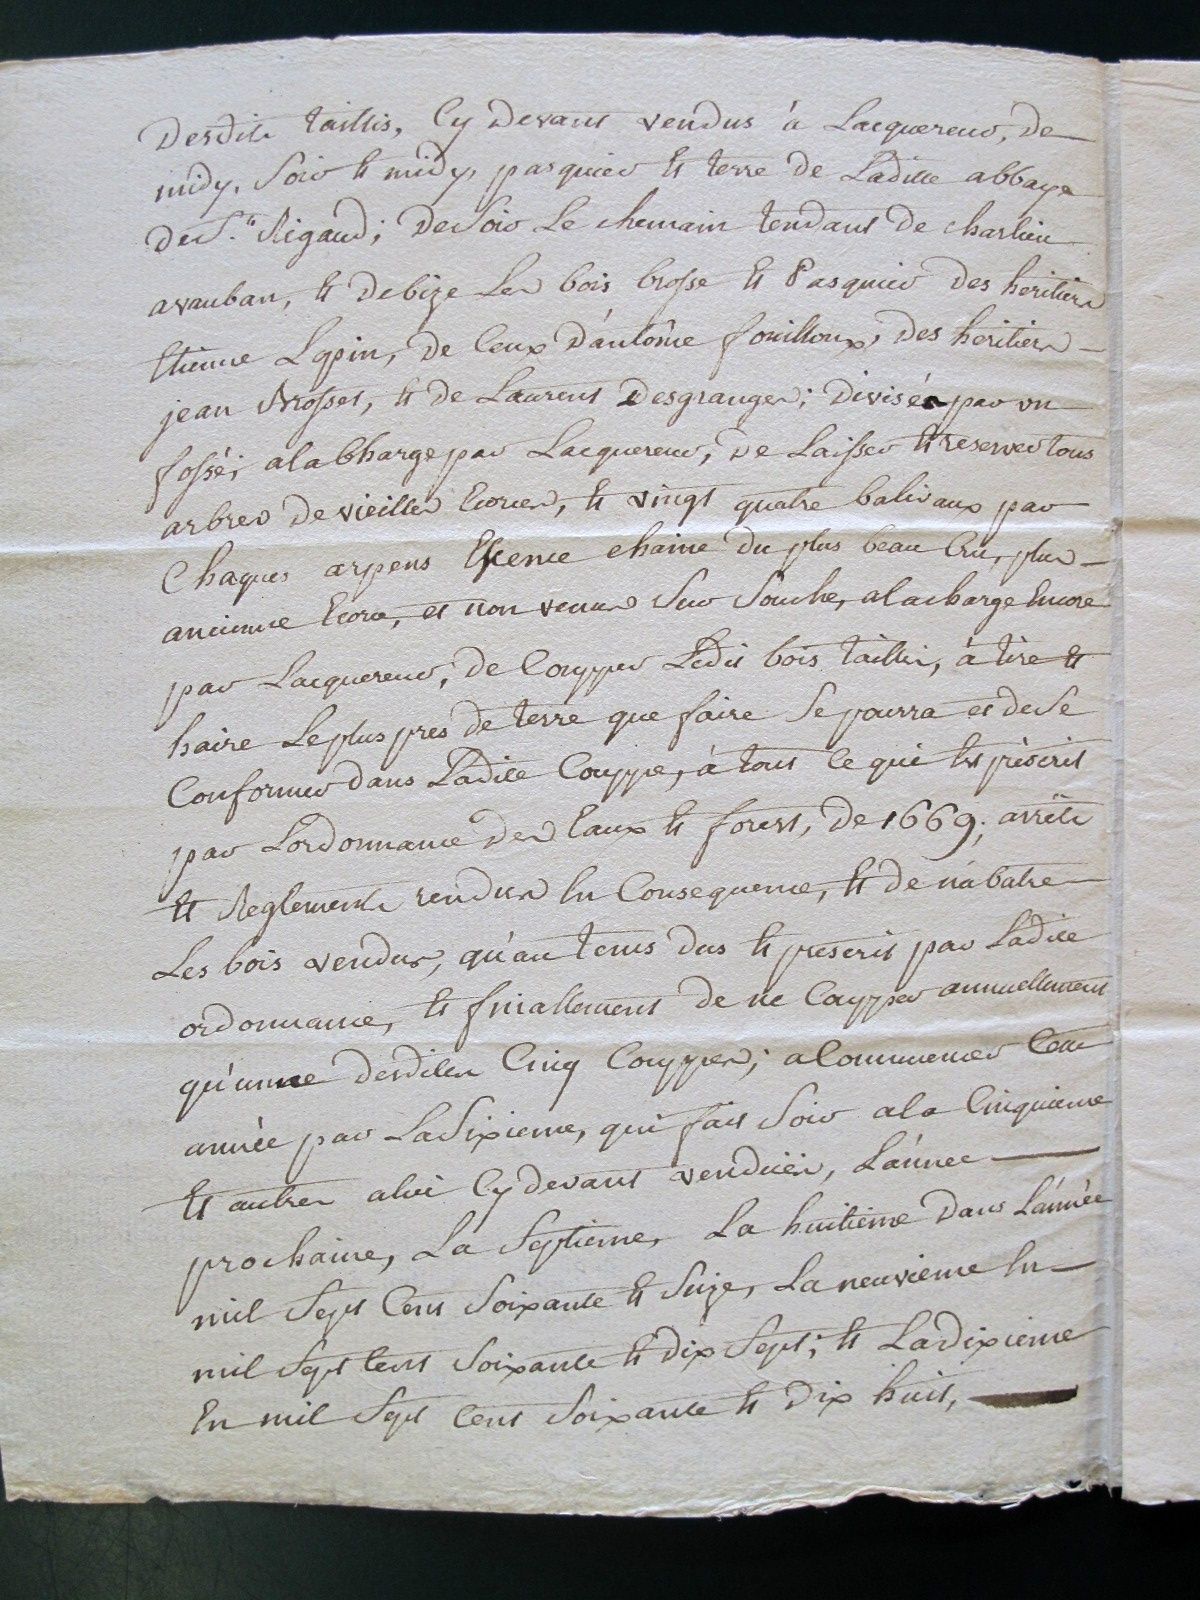 Desdits taillis, Cy devant vendus à Lacquereur, de
midy, Soir et midy, pasquier et terre de Laditte abbaye
de St. Rigaud; de Soir Le chemain tendant de charlieu
avauban, et debize Les bois brosse et Pasquier des heritiers
Etienne Lapin, de Ceux D'antoine fouilloux, des heritiers
jean Brosset, et de Laurent Desgranges; divisés par un
fossé; ala Charge par Lacquereur, de Laisser et reserver tous
arbres de vieilles Ecorces, et vingt quatre balivaux par
Chaques arpens Essence chaine du plus beau Cru, plus
ancienne Ecorce, et non venus Sur Souche, ala charge Encore
par Lacquereur, de Coupper Ledit bois taillis, à tire et
haire Le plus pres de terre que faire Se pourra et de Se
Conformer dans Ladite Couppe, à tout Ce qui Est préscrit
par Lordonnance des Eaux et forest, de 1669; arrêts
et Reglements rendus En Consequence, et de n'abatre
Les bois vendus, qu'au tems dus et prescrit par Ladite
ordonnance, et finallement de ne Coupper annuellement
qu'unne desdites Cinq Couppes; a Commencer Cette
année par La Sixieme, qui fait Soir a la Cinquieme
et autres alui Cy devant venduës, L'année
prochaine, La Septieme, La huitieme dans L'année
mil Sept Cent Soixante et Seize, La neuvieme En
mil Sept Cent Soixante et dix Sept; et La dixieme
En mil Sept Cent Soixante et dix huit,